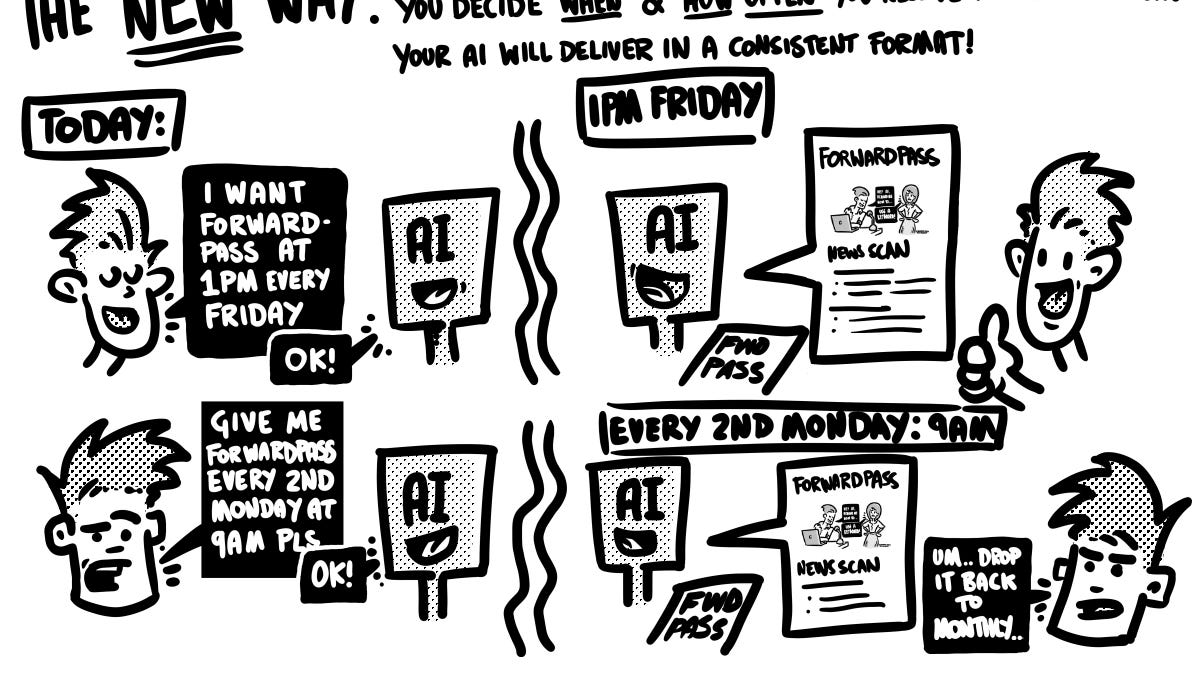 THE NEW WAY. YOU DECIDE WHEN & HOW OFTEN YOU
YOUR AI WILL DELIVER IN A CONSISTENT FORMAT!
TODAY:
I WANT
FORWARD-
PASS AT
1PM EVERY
FRIDAY
OK!
AI
1PM FRIDAY
AI
FWD
PASS
FORWARDPASS
NEWS SCAN
GIVE ME
FORWARDPASS
EVERY 2ND
MONDAY AT
9AM PLS
OK!
AI
EVERY 2ND MONDAY: 9AM
AI
FWD
PASS
FORWARDPASS
NEWS SCAN
UM.. DROP
IT BACK
TO
MONTHLY..